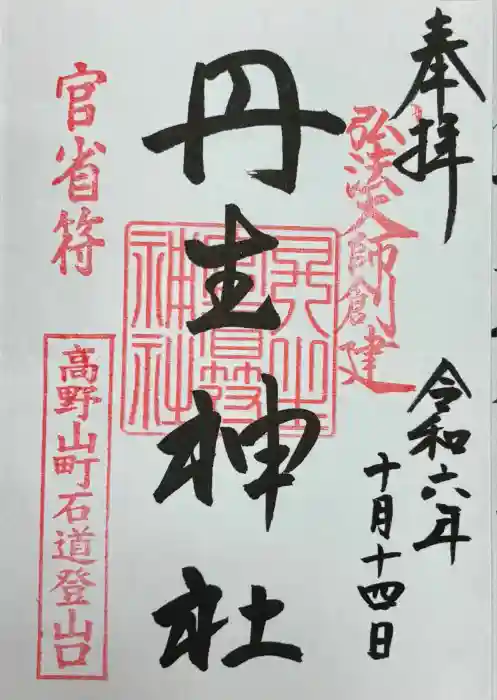 奉拝
弘法大師創建
令和六年
十月十四日
丹生神社
官省符
高野山町石道登山口